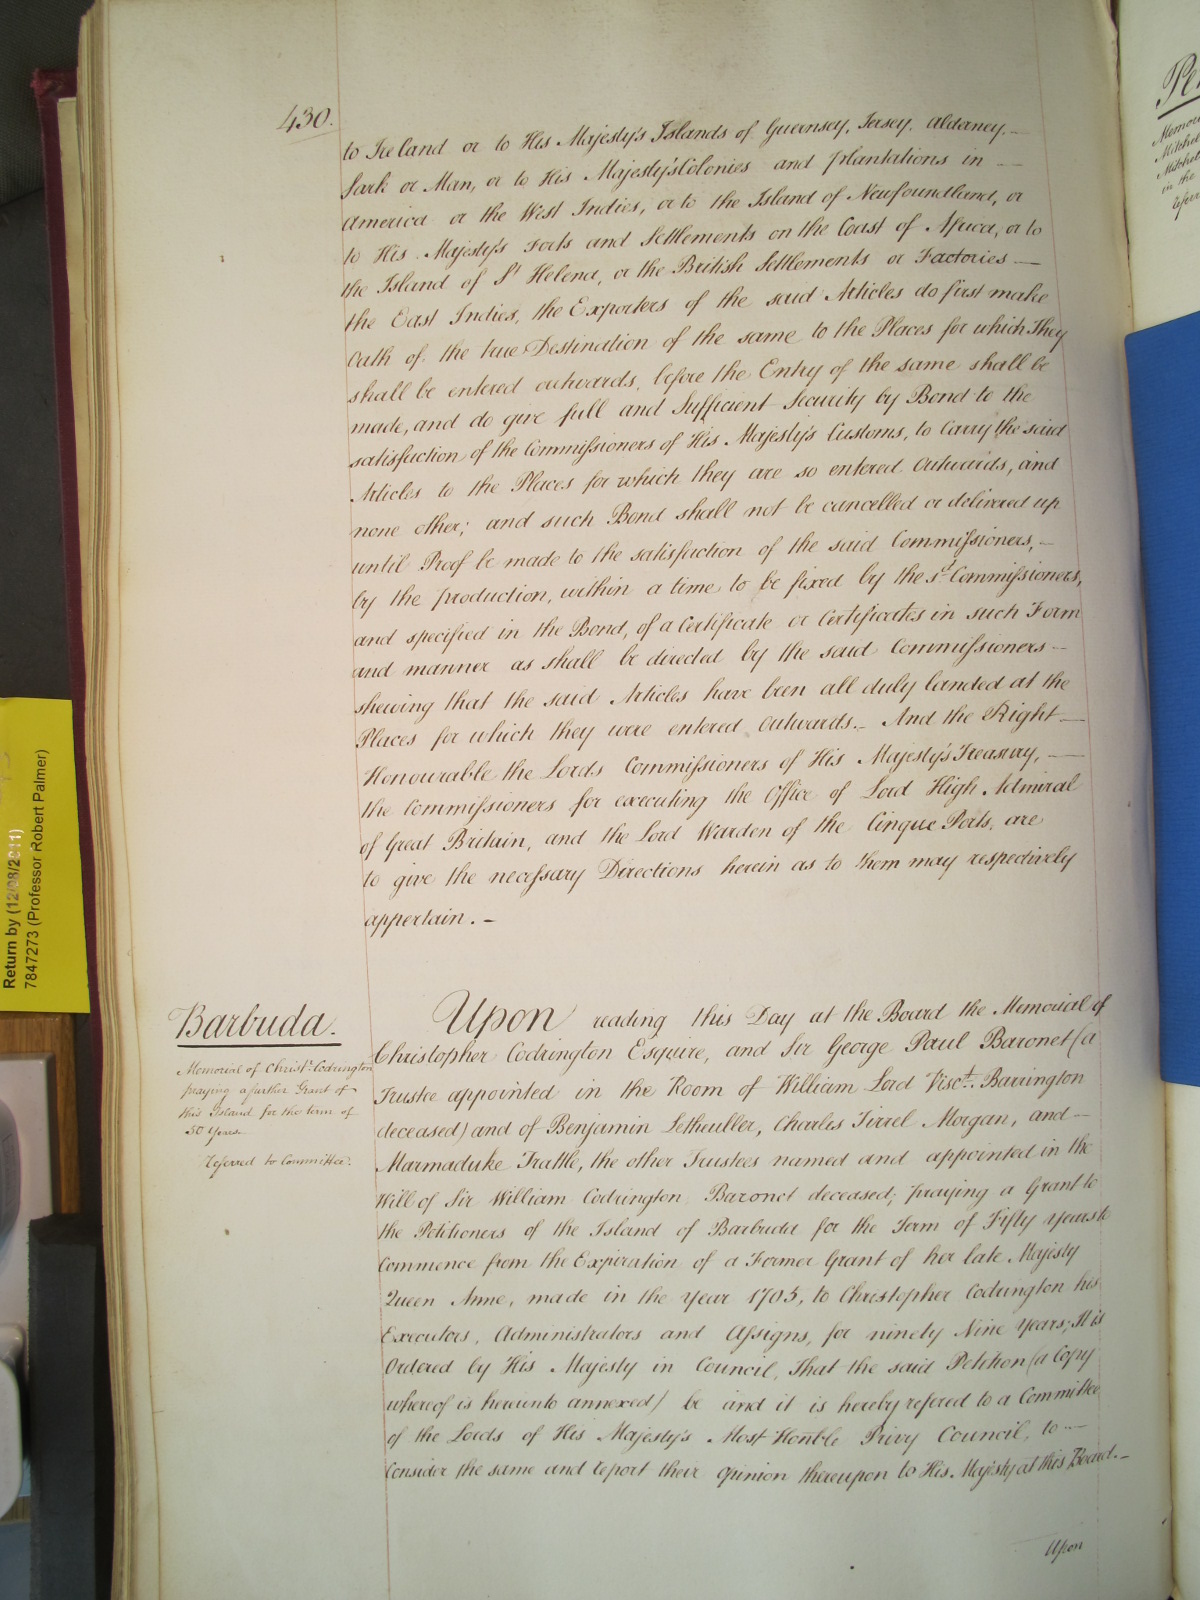 430.
to Ireland or to His Majesty's Islands of Guernsey, Jersey, Alderney,
Sark or Man, or to His Majesty's Colonies and plantations in
America or the West Indies, or to the Island of Newfoundland, or
to His Majesty's Forts and Settlements on the Coast of Africa, or to
the Island of St Helena, or the British Settlements or Factories
the East Indies, the Exporters of the said Articles do first make
Oath of the true Destination of the same to the Places for which They
shall be entered outwards, before the Entry of the same shall be
made, and do give full and Sufficient Security by Bond to the
satisfaction of the Commissioners of His Majesty's Customs, to Carry the said
Articles to the Places for which they are so entered Outwards, and
none other; and such Bond shall not be cancelled or delivered up
until Proof be made to the satisfaction of the said Commissioners,
by the production, within a time to be fixed by the sd Commissioners,
and specified in the Bond, of a Certificate or Certificates in such Form
and manner as shall be directed by the said Commissioners
shewing that the said Articles have been all duly landed at the
Places for which they were entered Outwards. And the Right
Honourable the Lords Commissioners of His Majesty's Treasury,
the Commissioners for executing the Office of Lord High Admiral
of Great Britain, and the Lord Warden of the Cinque Ports, are
to give the necessary Directions herein as to them may respectively
appertain. -
Barbuda.
Memorial of Christr. Codrington
praying a further Grant of
this Island for the term of
50 Years
Referred to Committee.
Upon reading this Day at the Board the Memorial of
Christopher Codrington Esquire, and Sir George Paul Baronet (a
Trustee appointed in the Room of William Lord Visct. Barrington
deceased) and of Benjamin Letheuller, Charles Tirrel Morgan, and
Marmaduke Trattle, the other Trustees named and appointed in the
Will of Sir William Codrington Baronet deceased; praying a Grant to
the Petitioners of the Island of Barbuda for the Term of Fifty years to
Commence from the Expiration of a Former Grant of her late Majesty
Queen Anne, made in the year 1705, to Christopher Codrington his
Executors, Administrators and Assigns, for ninety Nine years; It is
Ordered by His Majesty in Council, That the said Petition (a Copy
whereof is hereunto annexed) be and it is hereby refered to a Committee
of the Lords of His Majesty's Most Honble Privy Council, to
Consider the same and report their Opinion thereupon to His Majesty at this Board.
Upon
Return by (12/08/2011)
7847273 (Professor Robert Palmer)